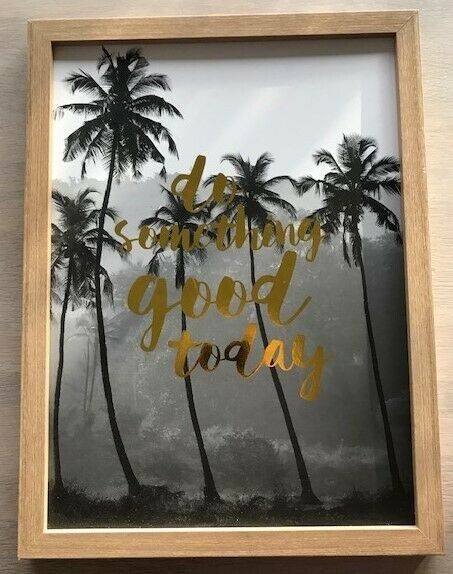 do
something
good
today